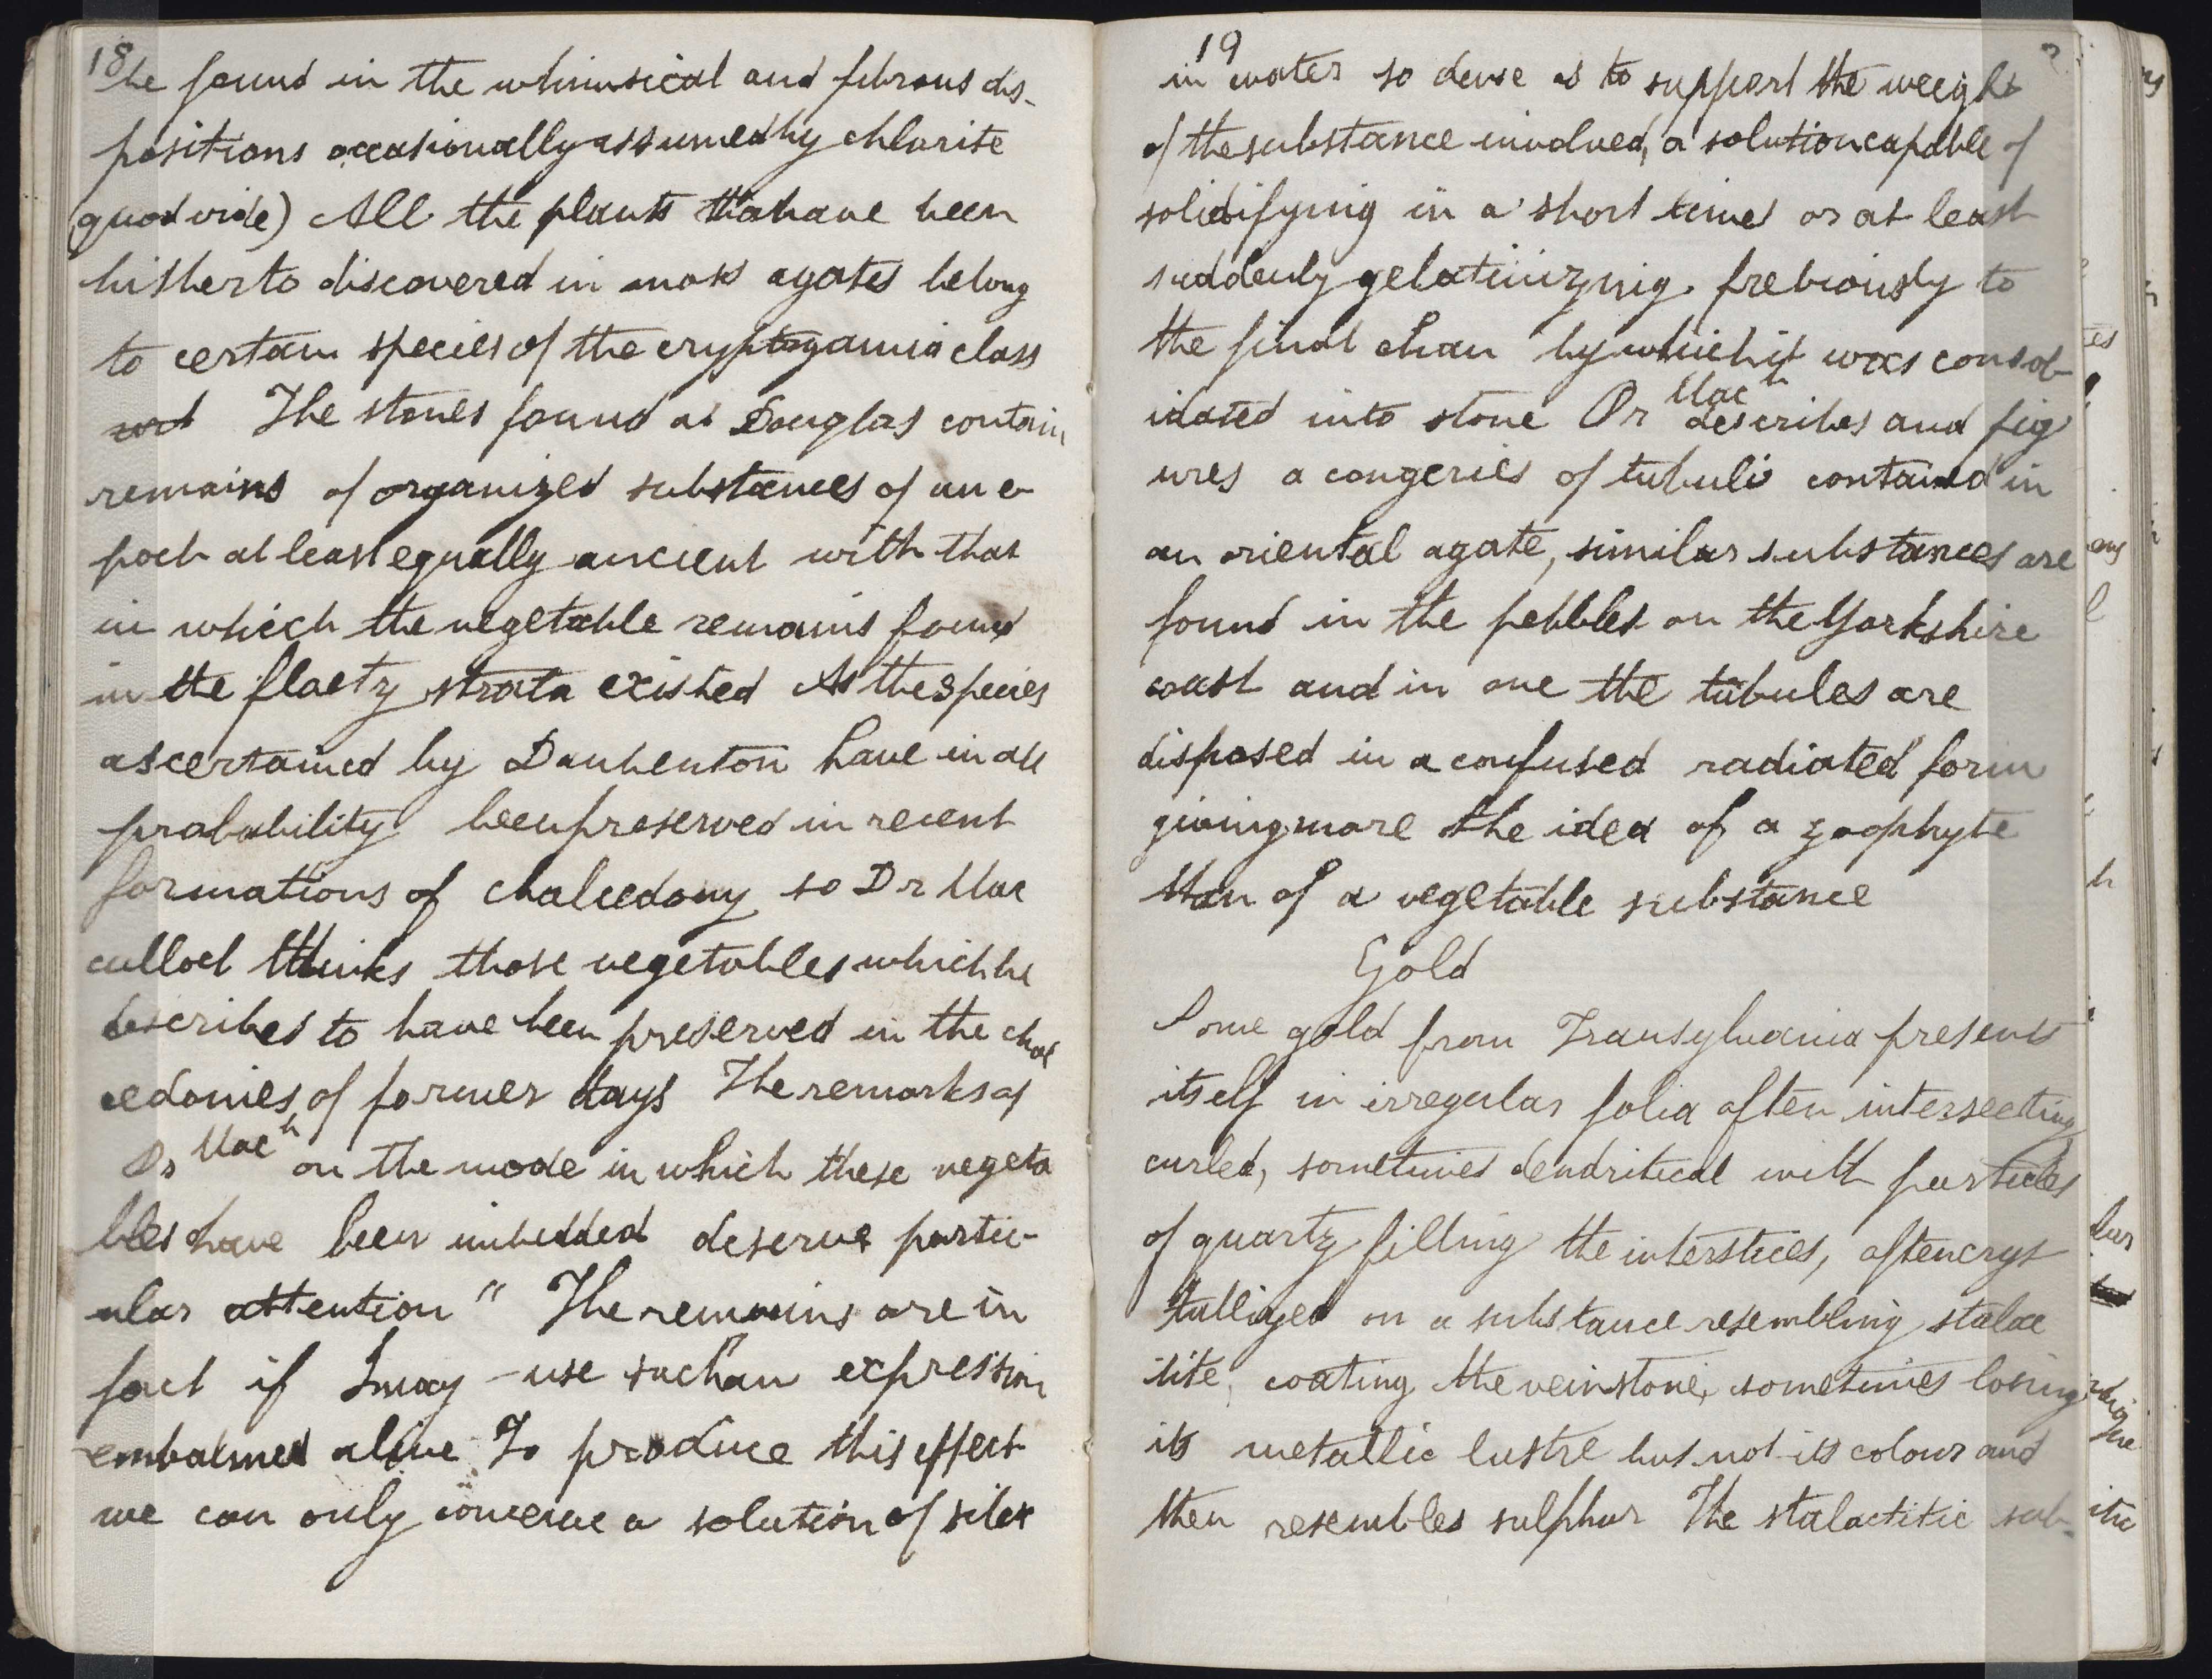 18
be found in the whimsical and fibrous dis-
positions occasionally assumed by chlorite
(quod vide) All the plants tha have been
hitherto discovered in moss agates belong
to certain species of the cryptogamia class
The stones found at Douglas contain
remains of organized substances of an e-
poch at least equally ancient with that
in which the vegetable remains found
in the flaetz strata existed As the species
ascertained by Daubenton have in all
probability been preserved in recent
formations of chalcedony so Dr Mac
culloch thinks those vegetables which he
describes to have been preserved in the chal
cedonies of former days The remarks of
Dr Mac h on the mode in which these vegeta
bles have been imbedded deserve partic-
ular attention " The remains are in
fact if I may use such an expression
embalmed alive To produce this effect
we can only conceive a solution of silex
19
in water so dense as to support the weight
of the substance involved, a solution capable of
solidifying in a short time or at least
suddenly gelatinizing previously to
the final chan by which it was consol-
idated into stone Dr Mac h describes and fig
ures a congeries of tubuli contained in
an oriental agate, similar substances are
found in the pebbles on the Yorkshire
coast and in one the tubules are
disposed in a confused radiated form
giving more the idea of a zoophyte
than of a vegetable substance
Gold
Some gold from Transylvania presents
itself in irregular folia often intersecting
curled, sometimes dendritical with particles
of quartz filling the interstices, often crys
tallized on a substance resembling stalac
tite, coating the veinstone, sometimes losing
its metallic lustre but not its colour and
then resembles sulphur The stalactitic sub-